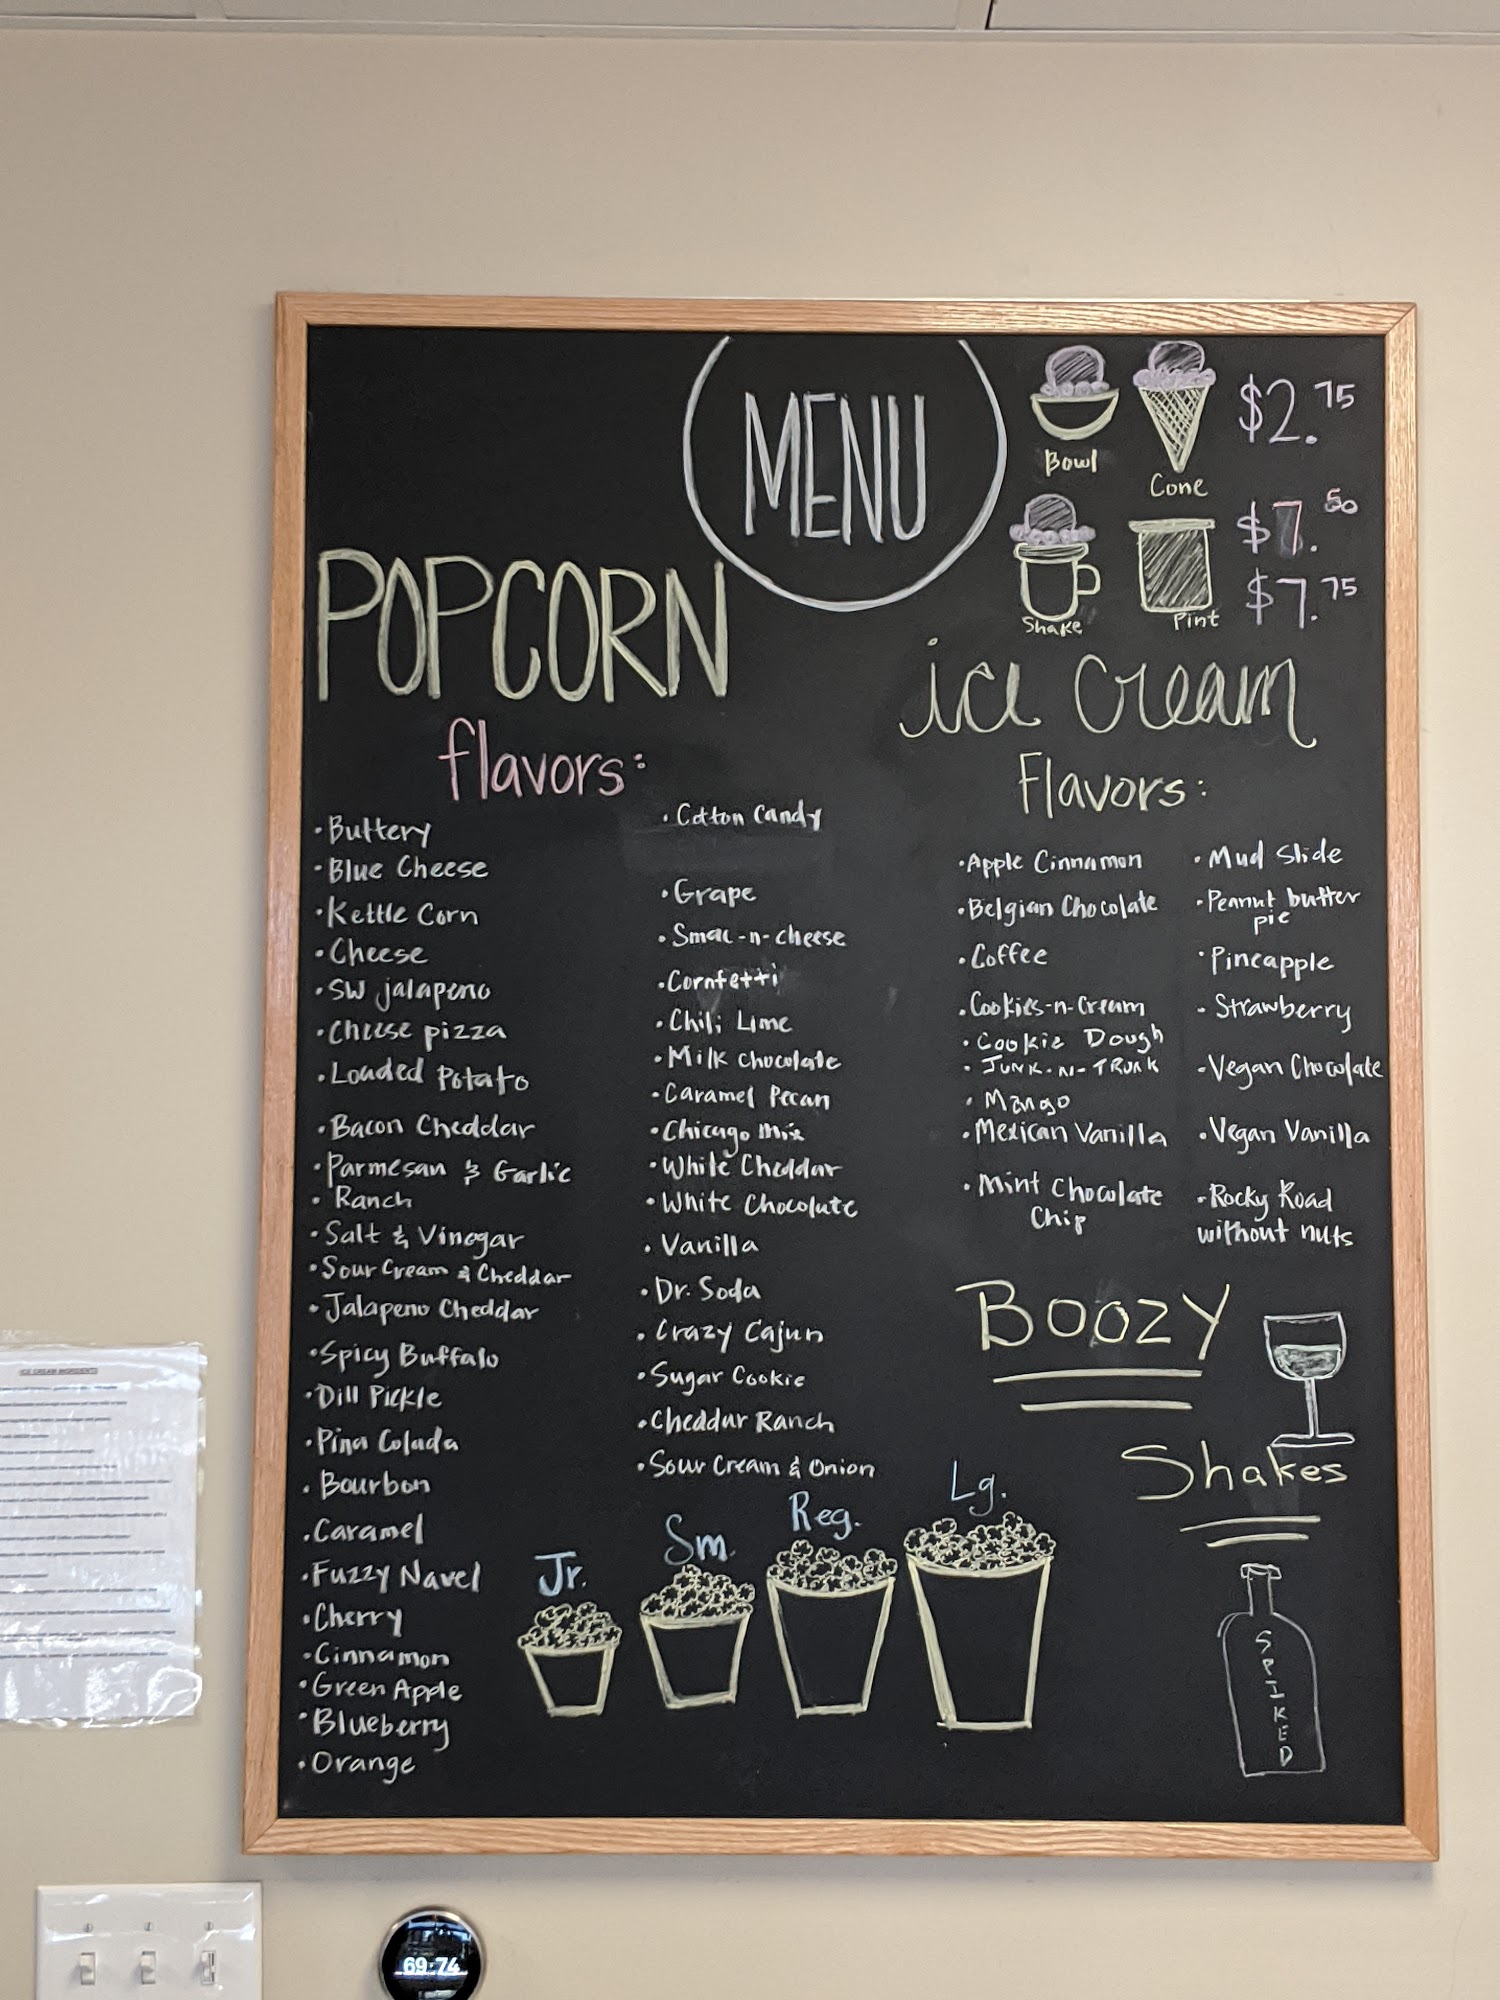 MENU
Bowl
Cone
$2.75
Shake
Pint
$7.50
$7.75
POPCORN
flavors:
• Buttery
• Blue Cheese
• Kettle Corn
• Cheese
• SW jalapeno
• Cheese pizza
• Loaded Potato
• Bacon Cheddar
• Parmesan & Garlic
• Ranch
• Salt & Vinegar
• Sour Cream & Cheddar
• Jalapeno Cheddar
• Spicy Buffalo
• Dill Pickle
• Pina Colada
• Bourbon
• Caramel
• Fuzzy Navel
• Cherry
• Cinnamon
• Green Apple
• Blueberry
• Orange
• Cotton Candy
• Grape
• Smac-n-cheese
• Cornfetti
• Chili Lime
• Milk Chocolate
• Caramel Pecan
• Chicago Mix
• White Cheddar
• White Chocolate
• Vanilla
• Dr. Soda
• Crazy Cajun
• Sugar Cookie
• Cheddar Ranch
• Sour Cream & Onion
Jr.
Sm.
Reg.
Lg.
ice cream
Flavors:
• Apple Cinnamon
• Belgian Chocolate
• Coffee
• Cookies-n-Cream
• Cookie Dough
• JUNK-N-TRUNK
• Mango
• Mexican Vanilla
• Mint Chocolate
Chip
• Mud Slide
• Peanut butter
pie
• Pineapple
- Strawberry
• Vegan Chocolate
• Vegan Vanilla
• Rocky Road
without nuts
BOOZY
Shakes
SPIKED
ICE CREAM INGREDIENTS
69:74